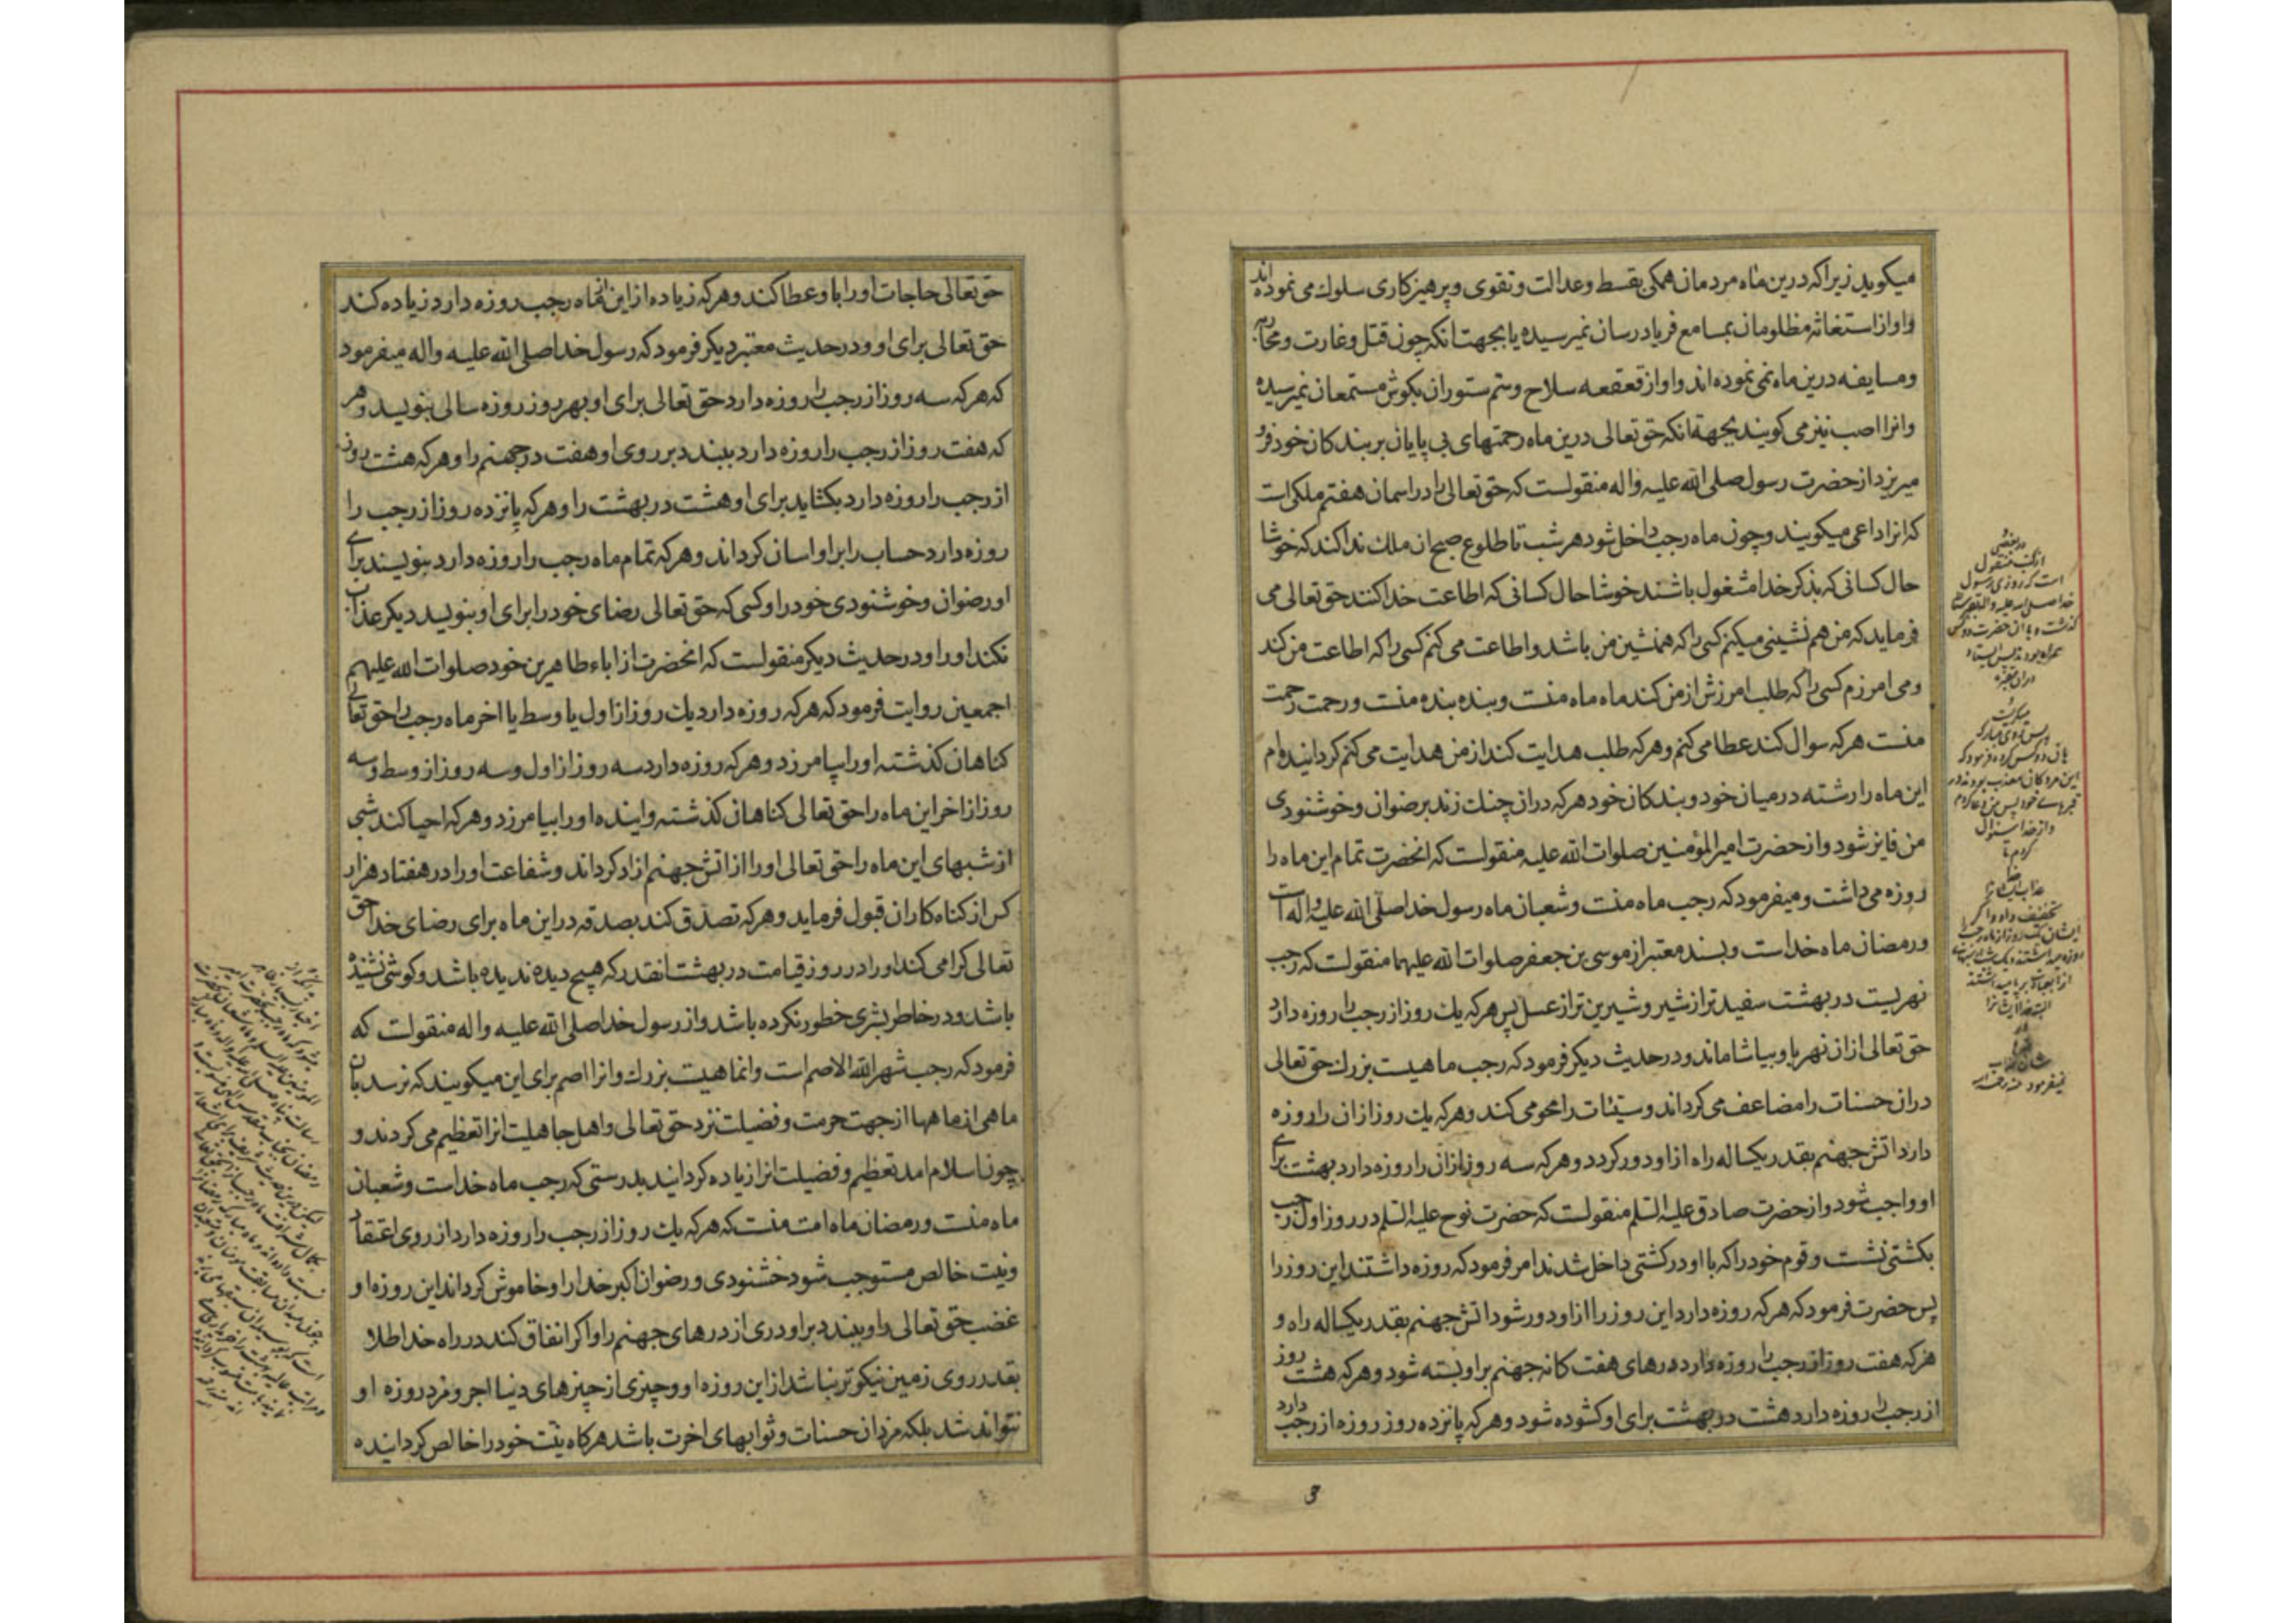 میکوید زیرا که درین ماه مردمان همکی بقسط و عدالت و تقوی و پرهیزکاری سلوک می نموده اند
و اواز استغاثه مظلومان بمسامع فریادرسان نمیرسیده یا بجهت انکه چون قتل و غارت و محاربه
و مسایفه درین ماه نمی نموده اند و اواز قعقعه سلاح و سم ستوران بکوش مستمعان نمیرسیده
و انرا اصب نیز می کویند بجهة انکه حق تعالی درین ماه رحمتهای بی پایان بر بندکان خود فرو
میریزد از حضرت رسول صلی الله علیه و اله منقولست که حق تعالی را در اسمان هفتم ملکی است
که انرا داعی میکویند و چون ماه رجب داخل شود هر شب تا طلوع صبح ان ملک ندا کند که خوشا
حال کسانی که بذکر خدا مشغول باشند خوشا حال کسانی که اطاعت خدا کنند حق تعالی می
فرماید که من هم نشینی میکنم کسی را که همنشین من باشد و اطاعت می کنم کسی را که اطاعت من کند
و می امرزم کسی را که طلب امرزش از من کند ماه ماه منست و بنده بنده منست و رحمت رحمت
منست هر که سوال کند عطا می کنم و هر که طلب هدایت کند از من هدایت می کنم کردانیده ام
این ماه را رشته در میان خود و بندکان خود هر که دران چنک زند برضوان و خوشنودی
من فایز شود و از حضرت امیر المؤمنین صلوات الله علیه منقولست که انحضرت تمام این ماه را
روزه می داشت و میفرمود که رجب ماه منست و شعبان ماه رسول خدا صلی الله علیه و اله است
و رمضان ماه خداست و بسند معتبر از موسی بن جعفر صلوات الله علیهما منقولست که رجب
نهریست در بهشت سفید تر از شیر و شیرین تر از عسل پس هر که یک روز از رجب را روزه دارد
حق تعالی از ان نهر باو بیاشاماند و در حدیث دیکر فرمود که رجب ماهیست بزرک حق تعالی
دران حسنات را مضاعف می کرداند و سیئات را محو می کند و هر که یک روز از ان را روزه
دارد اتش جهنم بقدر یکساله راه از او دور کردد و هر که سه روز از ان را روزه دارد بهشت برای
او واجب شود و از حضرت صادق علیه السلم منقولست که حضرت نوح علیه السلم در روز اول رجب
بکشتی نشست و قوم خود را که با او در کشتی داخل شدند امر فرمود که روزه داشتند این روز را
پس حضرت فرمود که هر که روزه دارد این روز را از او دور شود اتش جهنم بقدر یکساله راه و
هر که هفت روز از رجب را روزه دارد درهای هفت کانه جهنم بر او بسته شود و هر که هشت روز
از رجب را روزه دارد هشت در بهشت برای او کشوده شود و هر که پانزده روز روزه از رجب دارد
در بعضی
از کتب منقول
است که روزی رسول
خدا صلی الله علیه و اله
میکریست
این مردکان معذب بودند در
قبرهای خود پس من دعا کردم
و از خدا سئوال
کردم تا
3
حق تعالی حاجات او را باو عطا کند و هر که زیاده از این از ماه رجب روزه دارد زیاده کند
حق تعالی برای او و در حدیث معتبر دیکر فرمود که رسول خدا صلی الله علیه و اله میفرمود
که هر که سه روز از رجب را روزه دارد حق تعالی برای او بهر روز روزه سالی بنویسد و هر
که هفت روز از رجب را روزه دارد ببندد بر روی او هفت در جهنم را و هر که هشت روز
از رجب را روزه دارد بکشاید برای او هشت در بهشت را و هر که پانزده روز از رجب را
روزه دارد حساب را بر او اسان کرداند و هر که تمام ماه رجب را روزه دارد بنویسند برای
او رضوان و خوشنودی خود را و کسی که حق تعالی رضای خود را برای او بنویسد دیکر عذاب
نکند او را و در حدیث دیکر منقولست که انحضرت از اباء طاهرین خود صلوات الله علیهم
اجمعین روایت فرمود که هر که روزه دارد یک روز از اول یا وسط یا اخر ماه رجب را حق تعالی
کناهان کذشته او را بیامرزد و هر که روزه دارد سه روز از اول و سه روز از وسط و سه
روز از اخر این ماه را حق تعالی کناهان کذشته و اینده او را بیامرزد و هر که احیا کند شبی
از شبهای این ماه را حق تعالی او را از اتش جهنم ازاد کرداند و شفاعت او را در هفتاد هزار
کس از کناه کاران قبول فرماید و هر که تصدق کند بصدقه در این ماه برای رضای خدا حق
تعالی کرامی کند او را در روز قیامت در بهشت انقدر که هیچ دیده ندیده باشد و کوشی نشنیده
باشد و در خاطر بشری خطور نکرده باشد و از رسول خدا صلی الله علیه و اله منقولست که
فرمود که رجب شهر الله الاصم است و انماهیست بزرک و انرا اصم برای این میکویند که نرسد بان
ماهی از ماهها از جهت حرمت و فضیلت نزد حق تعالی و اهل جاهلیت انرا تعظیم می کردند و
چون اسلام امد تعظیم و فضیلت انرا زیاده کردانید بدرستی که رجب ماه خداست و شعبان
ماه منست و رمضان ماه امت منست که هر که یک روز از رجب را روزه دارد از روی اعتقاد
و نیت خالص مستوجب شود خشنودی و رضوان اکبر خدا را و خاموش کرداند این روزه او
غضب حق تعالی را و ببندد بر او دری از درهای جهنم را و اکر انفاق کند در راه خدا طلا
بقدر روی زمین نیکوتر نباشد از این روزه او و چیزی از چیزهای دنیا اجر و مزد روزه او
نتواند شد بلکه مزدان حسنات و ثوابهای اخرت باشد هرکاه نیت خود را خالص کردانیده